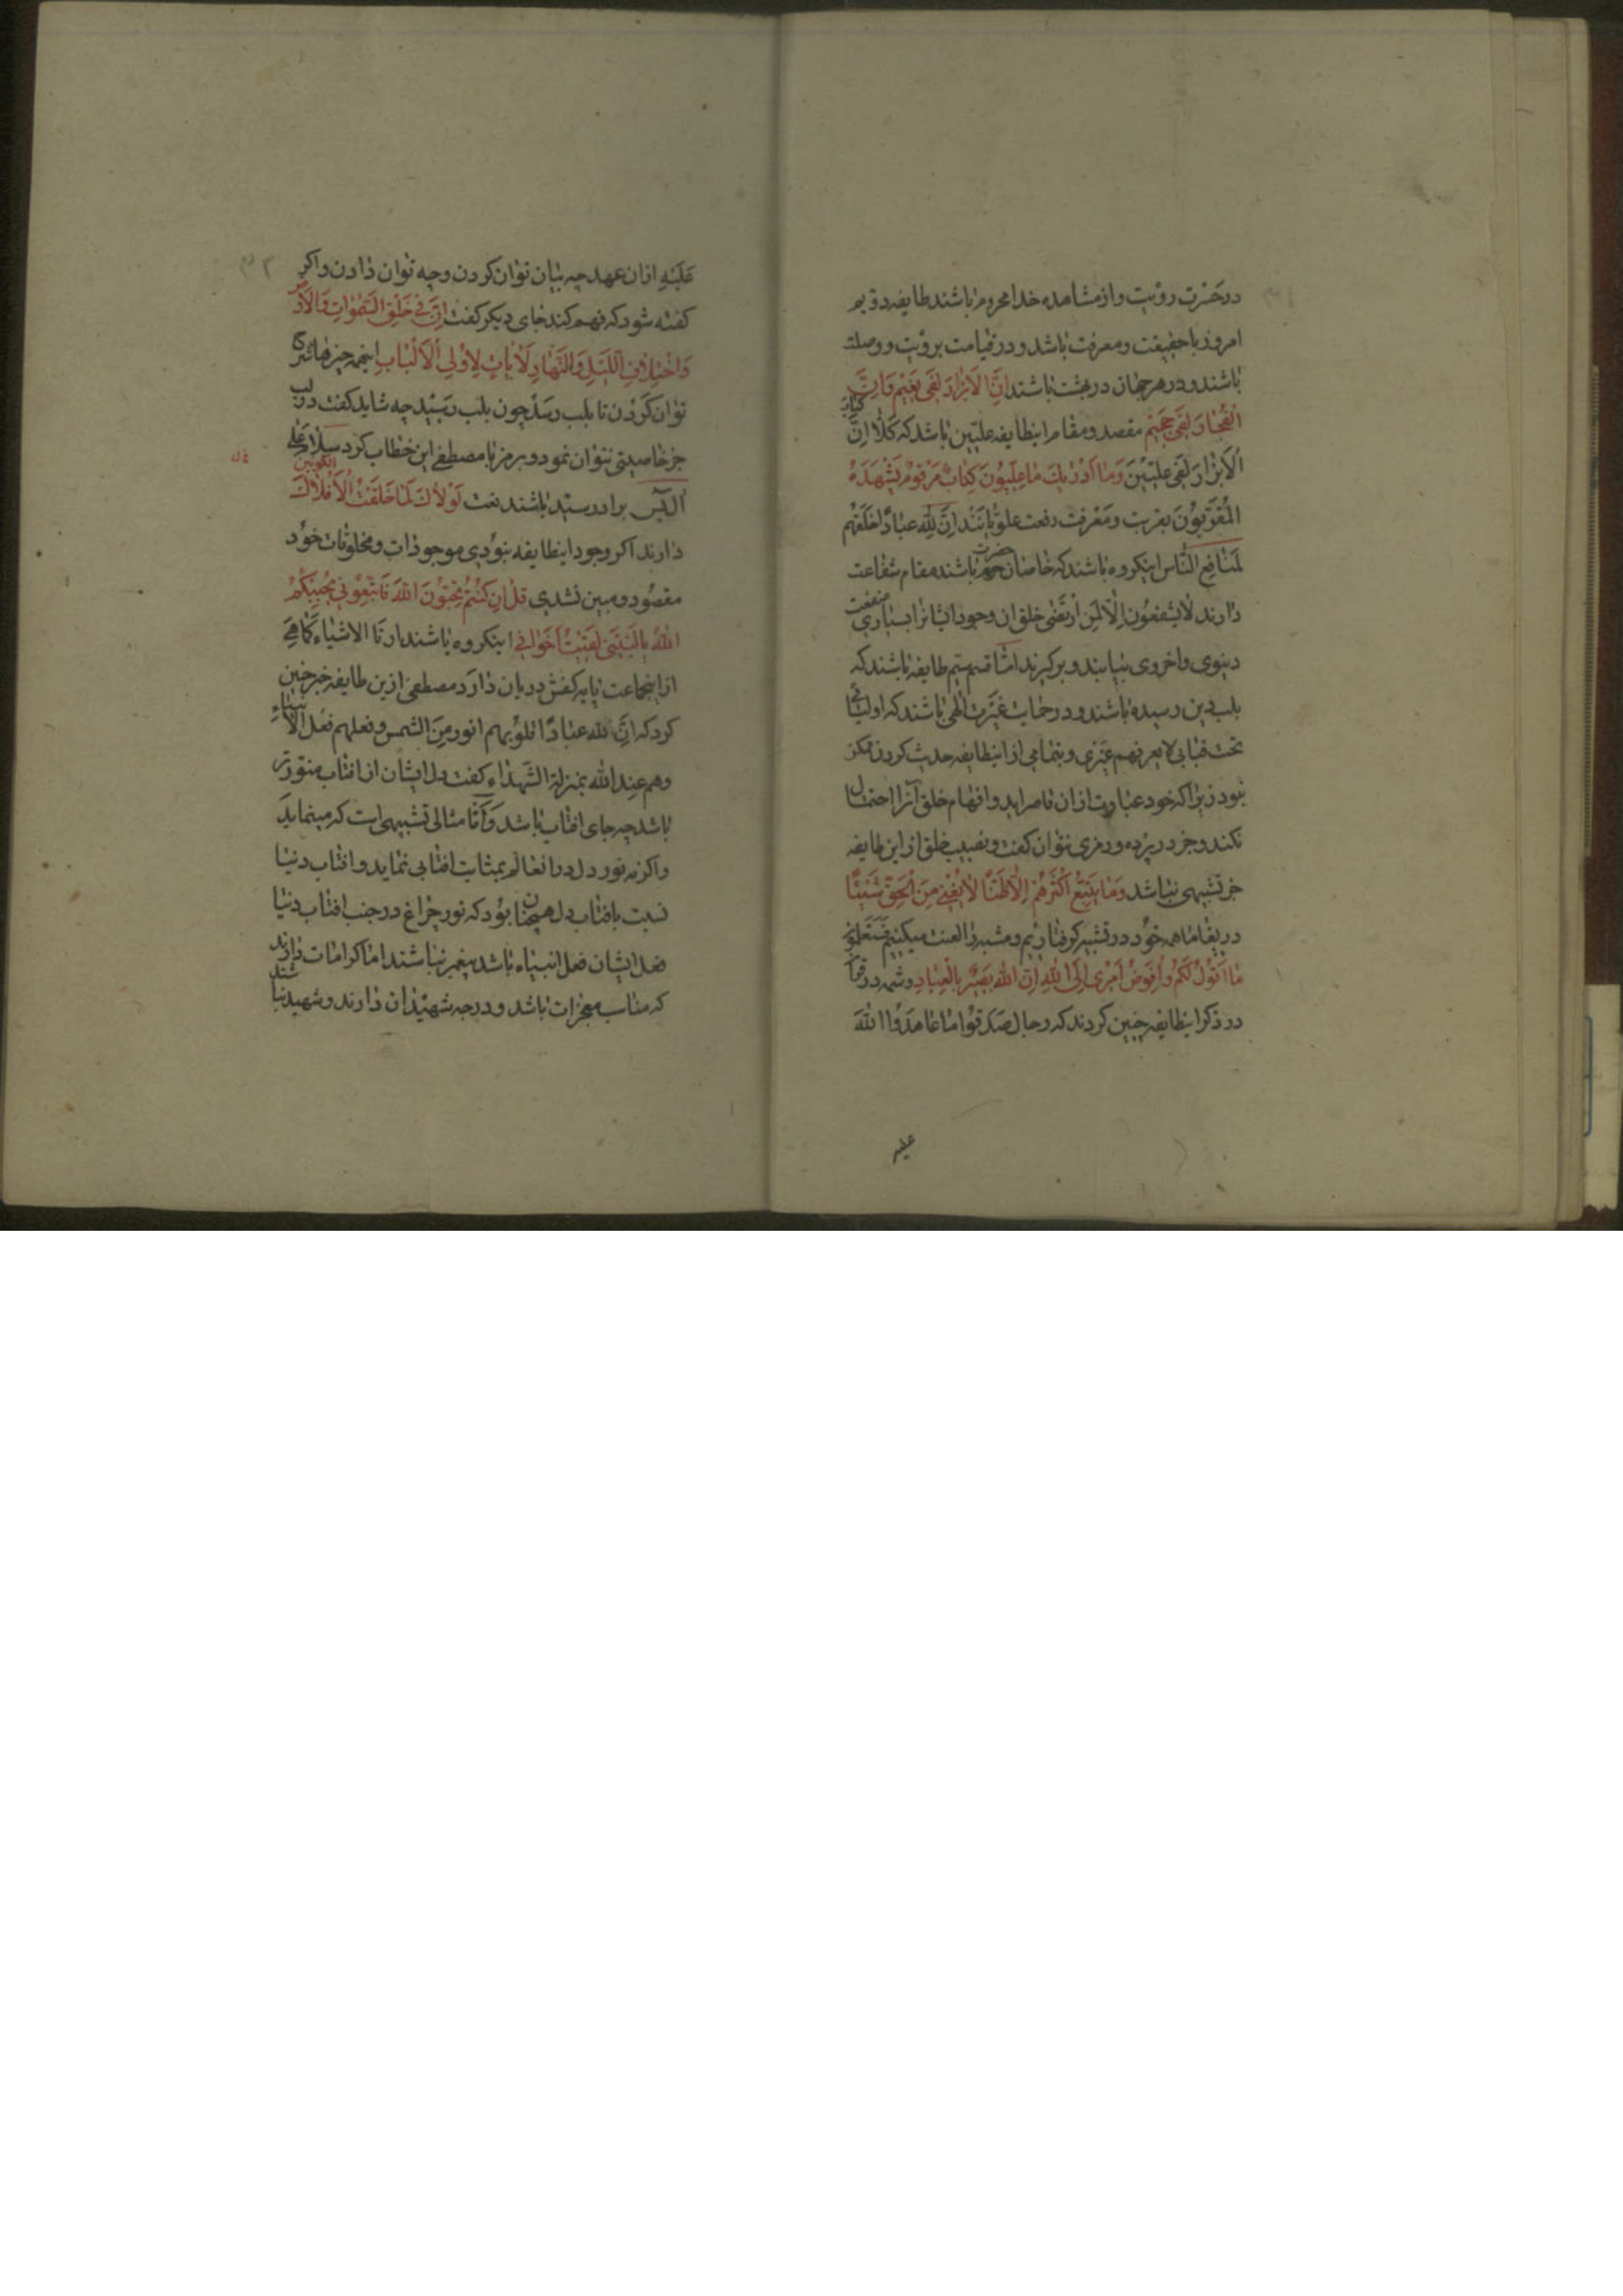 در حَسْرت رؤیت و از مشاهده خدا محروم باشند طایفه دوّیم
امروز با حقیقت و معرفت باشد و در قیامت برؤیت و وصلت
باشند و در هر جهان در بهشت باشند اِنَّ الاَبْرارَ لَفی نَعیْمٍ وَاِنَّ
الفُجّارَ لَفی جَحیْمٍ مقصد و مقام اینطایفه علیّین باشد که کَلّا اِنَّ کتابَ
اْلاَبْرارَ لَفی عِلیّیْنَ وَمٰا اَدْرٰیكَ مٰا عِلّیوُنَ کِتابٌ مَرْقومٌ یَشْهَدُهُ
المُقَرَّبُوْنَ بقربت و مَعْرفت رفعت علوّ یابَنْد اِنَّ لِلّٰهِ عبٰادًا خلَقَهُم
لِمَنٰافِعِ النّاس اینکروه باشند که خاصان حضرت باشند مقام شفاعت
دارند لٰا یشفعُون اِلّا لَمِن اِرْتَضٰی خلق از وجود ایشانرا بسیاری منفعت
دینوی و اخروی بیابند و برکیرند امّا قسم سیّم طایفه باشند که
بلب دین رسیده باشند و در حمایت غیَرت الٰهی باشند که اولیائی
تحت قبابی لا یعرفهم غیری و بتمامی از اینطایفه حدیث کردن ممکن
نبود زیراکه خود عبارت از ان قاصر اید و افهام خلق آنرا احتمال
نکند و جز در پرده و رمزی نتوان کفت و نصیب خلق از این طایفه
جز تشبیهی نباشد وَمٰا یَتبِعُ اکثَرهُمْ اِلّاظَنًّا لٰا یُغْنی مِنَ الْحَقّ شَیْئًا
دریغا ما همه خوُد در تشبیه کرفتاریم و مشبه را لعنت میکنیم فَسَتَعلموُنَ
مٰا اَقوُلُ لَکُمْ وَاُفَوِّضُ اَمْری اِلَی اللهِ اِنَّ اللهَ بَصیْرٌ بِالْعِبٰادِ و شمه در قرآن
در ذکر اینطایفه چنین کردند که رجال صَدَقوُا مٰا عٰاهَدوُا اللهَ
علیه
٣٢
عَلَیْهِ ازان عهد چه بیان توٰان کردن و چه توٰان دٰادن و اکر
کفته شود که فهم کند جٰای دیکر کفت اِنَّ فی خَلقِ السَّمٰوٰاتِ وَالاَرْضِ
وَاخْتِلٰافِ اللَّیْلِ وَالنَّهٰارِ لَاٰیٰاتٍ لِاوُلی الْاَلْبٰابِ اینهمه چیزها شرح
توٰان کردْن تا بلب رسَدْ چون بلب رسَیْد چه شاید کفت در لب
جز خاصیتی نتوان نمود و برمز با مصطفی این خطاب کرد سلام علی
اٰل یس برادر سید الکونین باشند نعت لَوْلاٰكَ لَمٰا خَلَقَتُ الْاَفْلاٰكَ
دارند اکر وجود اینطایفه نبوُدی موجودٰات و مخلوقات خوُد
مقصُود و مبین نشدی قل اِن کُنْتُمْ تحِبّوُنَ اللهَ فَاتّبَعِوُنی یُحْبِبْکُمُ
اللهُ یالَیْتَنی لَقَیْتُ اَخْوٰانی اینکروه باشند ارنا الاشیاء کَمٰا هِیَ
از اینجماعت پایه کفش دربان دارَد مصطفی ازین طایفه خبر چنین
کرد که انَّ لله عبَادًا قلوُبهم انور مِنَ الشّمس و فعلهم فعل الانبیاءِ
وهم عِند الله بمنزلة الشّهداء کفت دل ایشان از افتاب منوّرتر
باشد چه جای افتاب باشد و آنٰا مثالی تشبیهی است که مینماید
واکرنه نور دل در انعالم بمثابت افتابی نماید و افتاب دنیا
نسبت بافتاب دل همچنان بوُد که نور چراغ در جنب افتاب دنیا
فعل ایشان فعل انبیاء باشد پیغمبر نباشند اما کرامات دارند
که مناسب معجزات باشد و درجه شهیدان دارند و شهید نباشند